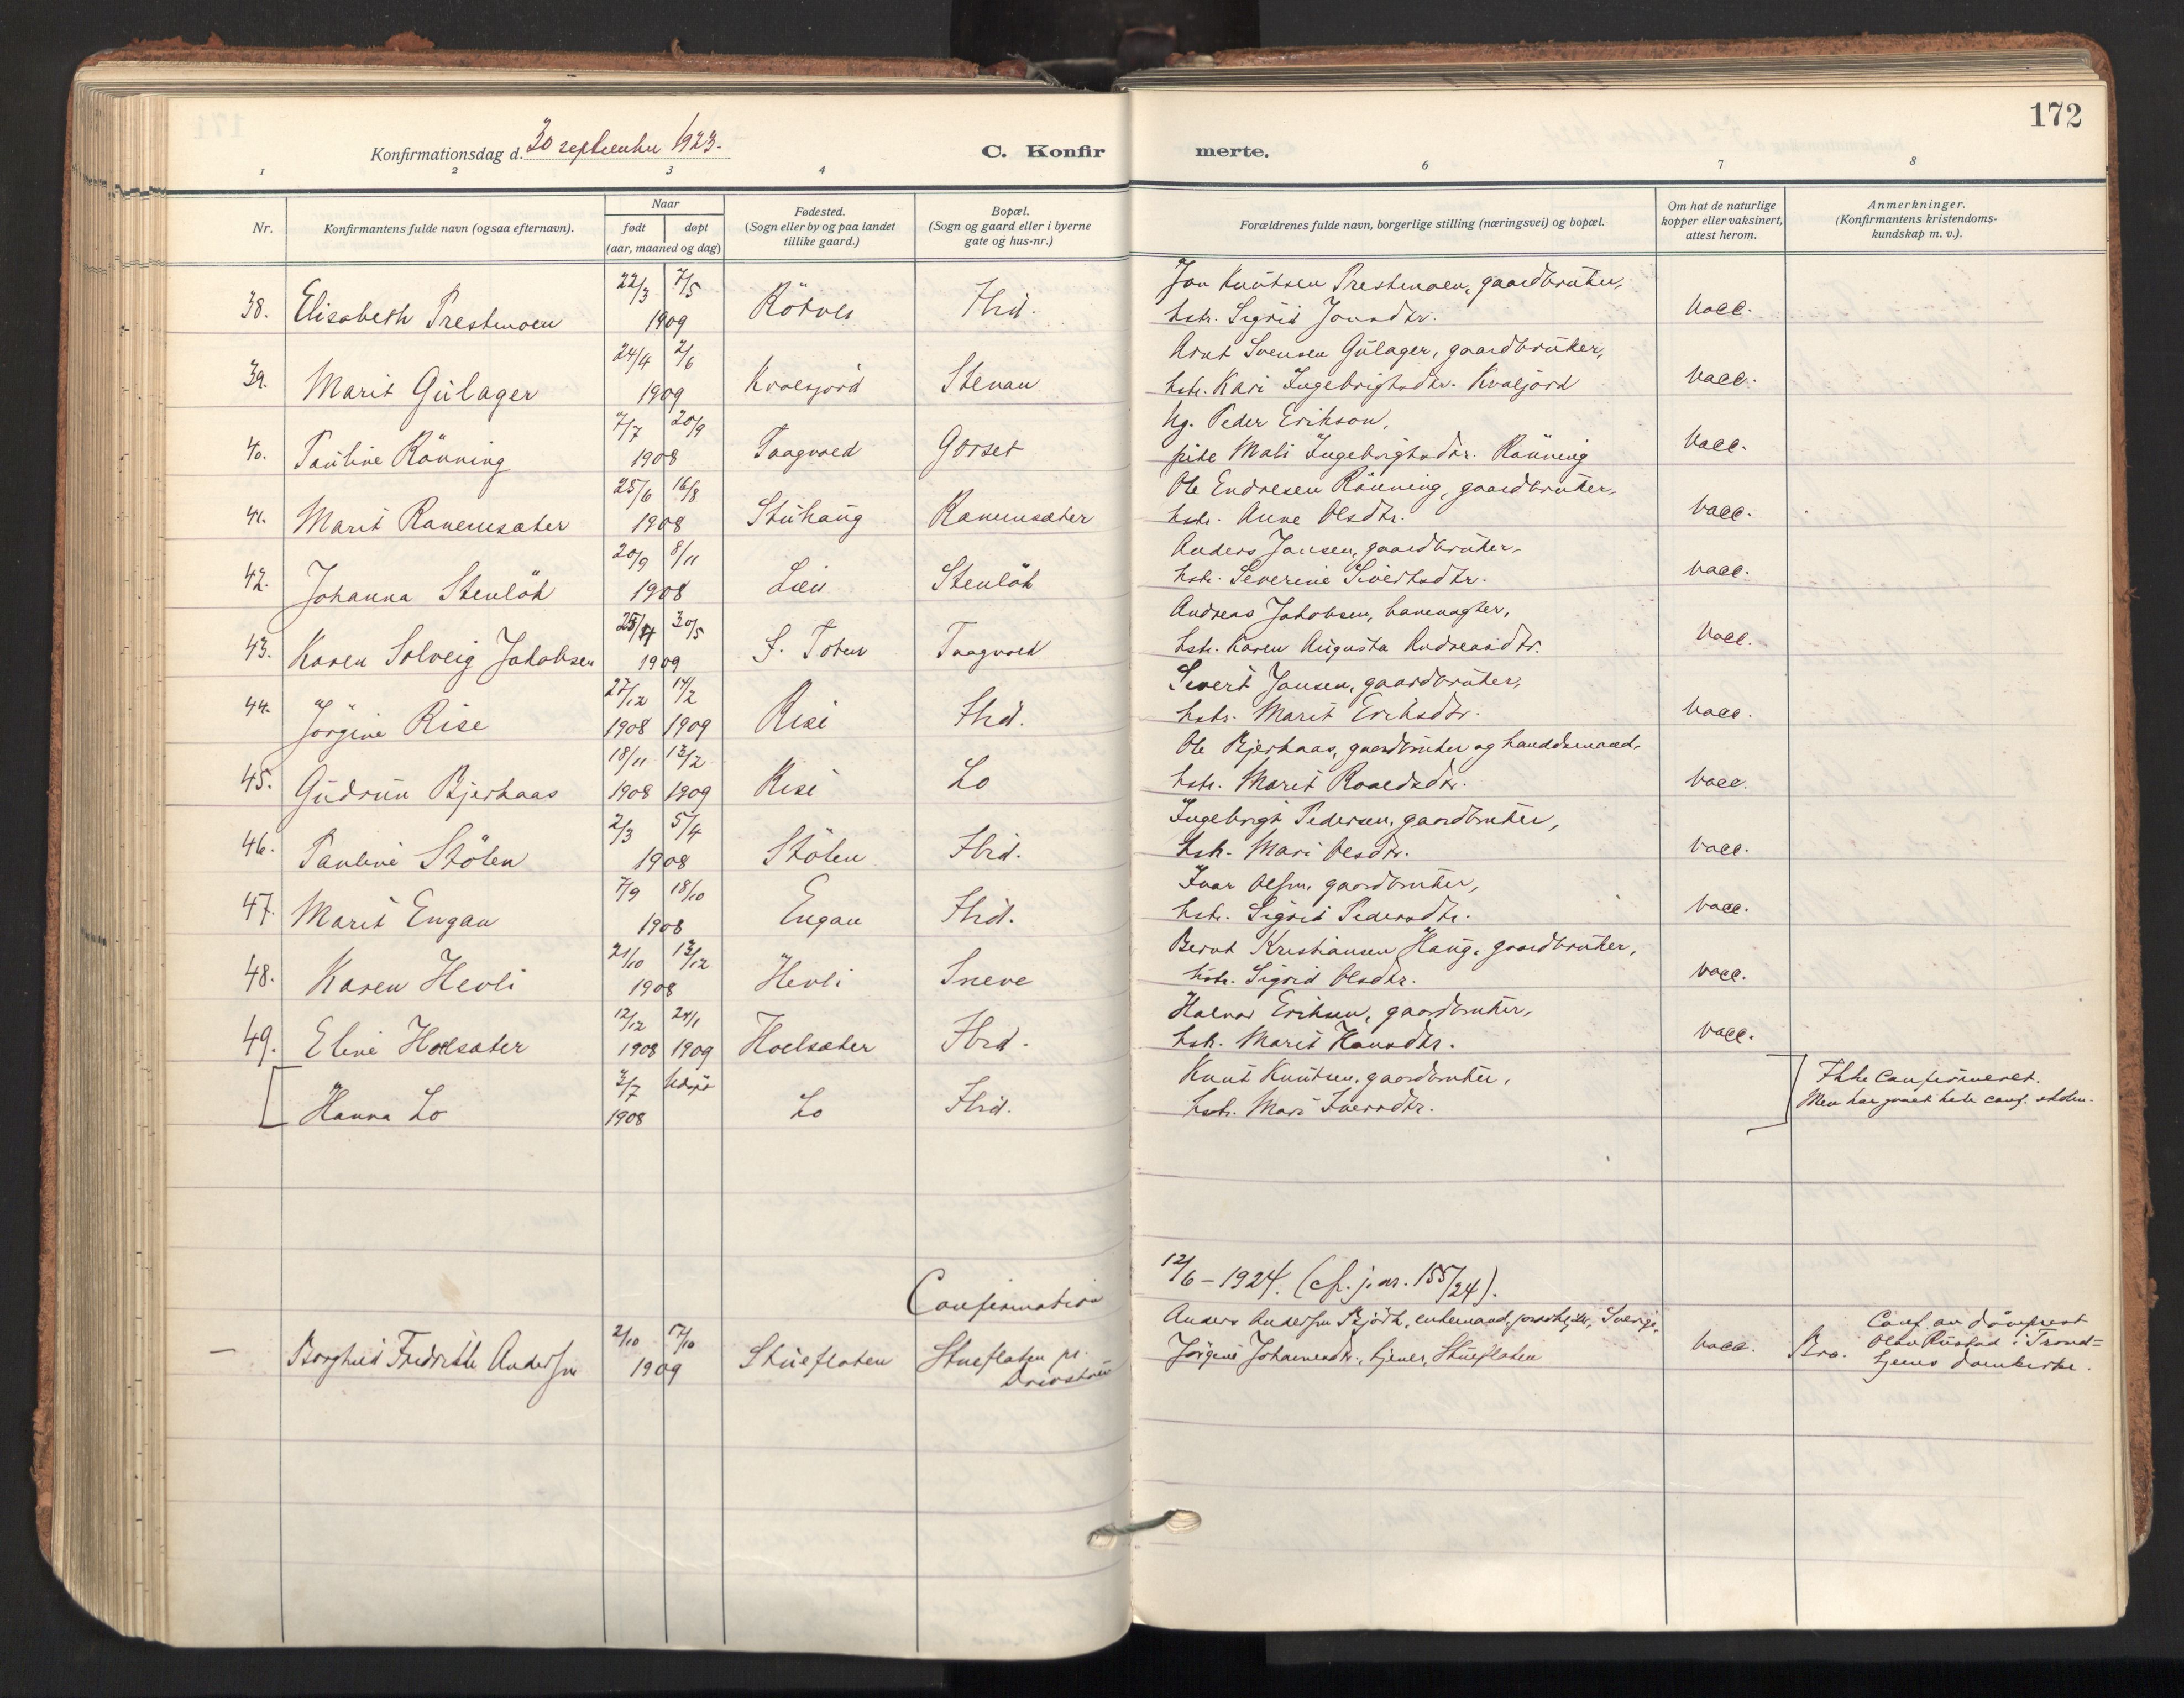 172
Konfirmationsdag d. 30 september 1923.
C. Konfir
merte.
1 2 3 4 6 7 8
Nr.
Konfirmantens fulde navn (ogsaa efternavn).
Naar
født døpt
(aar, maaned og dag)
Fødested.
(Sogn eller by og paa landet
tillike gaard.)
Bopæl.
(Sogn og gaard eller i byerne
gate og hus-nr.)
Forældrenes fulde navn, borgerlige stilling (næringsvei) og bopæl.
Om hat de naturlige
kopper eller vaksinert,
attest herom.
Anmerkninger.
(Konfirmantens kristendoms-
kundskap m. v.).
22/3 7/5 Jon Knutsen Prestmoen, gaardbruker,
38. Elisabeth Prestmoen 1909 Rötves Ibid. hstr. Sigrid Jonsdtr. vacc.
24/4 2/6 Arnt Svensen Gulager, gaardbruker,
39. Marit Gulager 1909 Kvalsjord Stenan hstr. Kari Ingebrigtsdtr. Kvaljord vacc.
7/7 20/9 Ug. Peder Erikson,
40. Pauline Rönning 1908 Taagvold Gorset pike Mali Ingebrigtsdtr. Rönning vacc.
25/6 16/8 Ole Endresen Rönning, gaardbruker,
41. Marit Ranemsæter 1908 Stuhaug Ranemsæter hstr. Anne Olsdtr. vacc.
20/9 8/11 Anders Jansen, gaardbruker,
42. Johanna Stenlök 1908 Lien Stenlök hstr. Severine Sivertsdtr. vacc.
30/5 Andreas Jakobsen, banevogter,
43. Karen Solveig Jakobsen 1909 S. Toten Taagvold hstr. Karen Augusta Andreasdtr. vacc.
27/12 14/2 Sivert Jansen, gaardbruker,
44. Jörgine Rise 1908 1909 Rise Ibid. hstr. Marit Eriksdtr. vacc.
18/11 13/2 Ole Bjerkaas, gaardbruker og handelsmand,
45. Gudrun Bjerkaas 1908 1909 Rise Lo hstr. Marit Roaldsdtr. vacc.
2/3 5/4 Ingebrigt Pedersen, gaardbruker,
46. Pauline Stölen 1908 Stölen Ibid. hstr. Mari Olsdtr. vacc.
7/9 18/10 Ivar Olsen, gaardbruker,
47. Marit Engan 1908 Engan Ibid. hstr. Sigrid Pedersdtr. vacc.
21/10 13/12 Bernt Kristiansen Haug, gaardbruker,
48. Karen Hevli 1908 Hevli Sneve hstr. Sigrid Olsdtr. vacc.
12/12 24/1 Halvor Eriksen, gaardbruker,
49. Eline Hoelsæter 1908 1909 Hoelsæter Ibid. hstr. Marit Hansdtr. vacc.
3/7 Knut Knutsen, gaardbruker, Ikke confirmeret.
Hanna Lo 1908 Lo Ibid. hstr. Mari Iversdtr. Men har gaaet hele conf. skolen.
Confirmation 12/6 - 1924. (cf. j.nr. 155/24).
2/10 17/10 Anders Andersen Björk, enkemand, Sverige, Conf. av domprovst
— Borghild Fredrikke Andersen 1909 Stueflaten Stueflaten pr. Jörgine Johannesdtr., tjener, Stueflaten vacc. Bra. i Trond=
Drivstuen hjems domkirke.